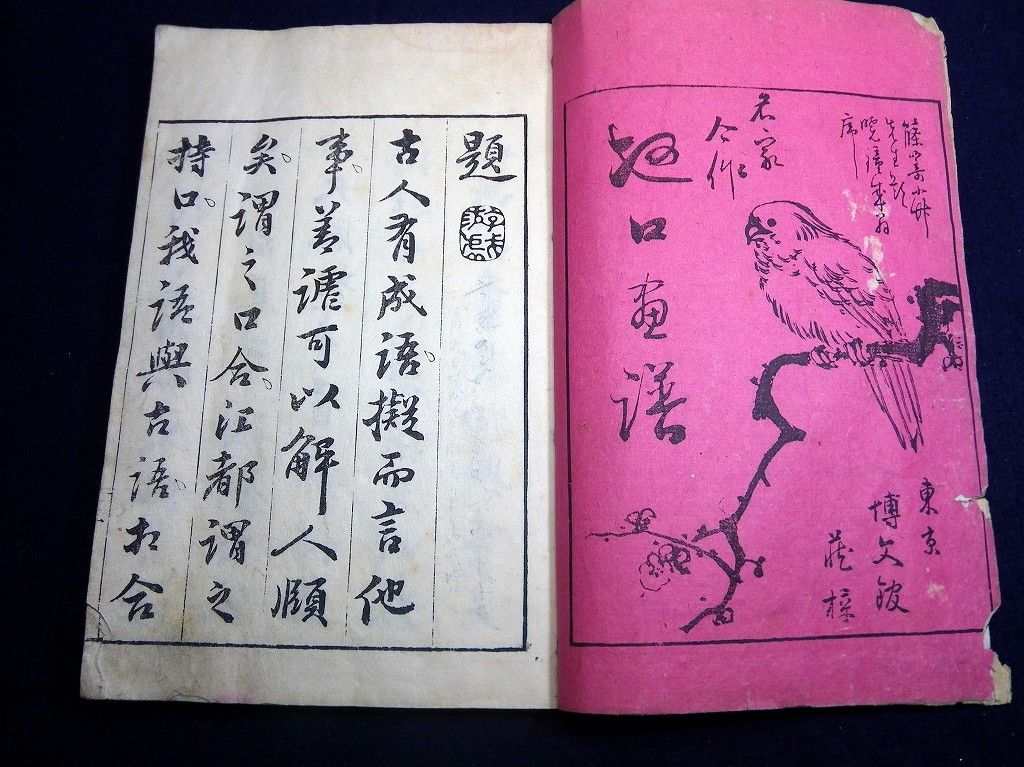 篠崎小竹
先生題
暁鐘成翁
序
名家
合作
地口畫譜
東京
博文館
藏梓
題
古人有成語。擬而言他
事。善謔可以解人頤
矣。謂之口合。江都謂之
持口。我語與古語。相合